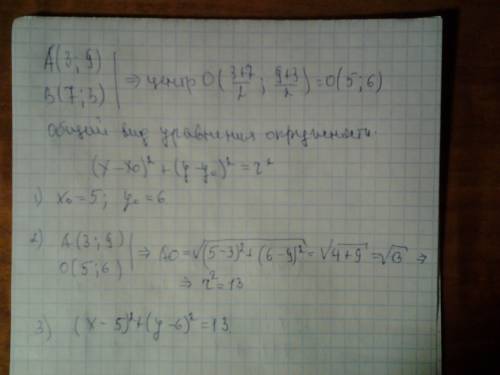 A(3; 9)
B(7; 3) ⇒ центр O((3+7)/2; (9+3)/2) = O(5; 6)
общий вид уравнения окружность.
(x - x₀)² + (y - y₀)² = r²
1) x₀ = 5; y₀ = 6
2) A(3; 9)
O(5; 6) ⇒ AO = √(5-3)² + (6-9)² = √4+9 = √13 ⇒
⇒ r² = 13
3) (x - 5)² + (y - 6)² = 13